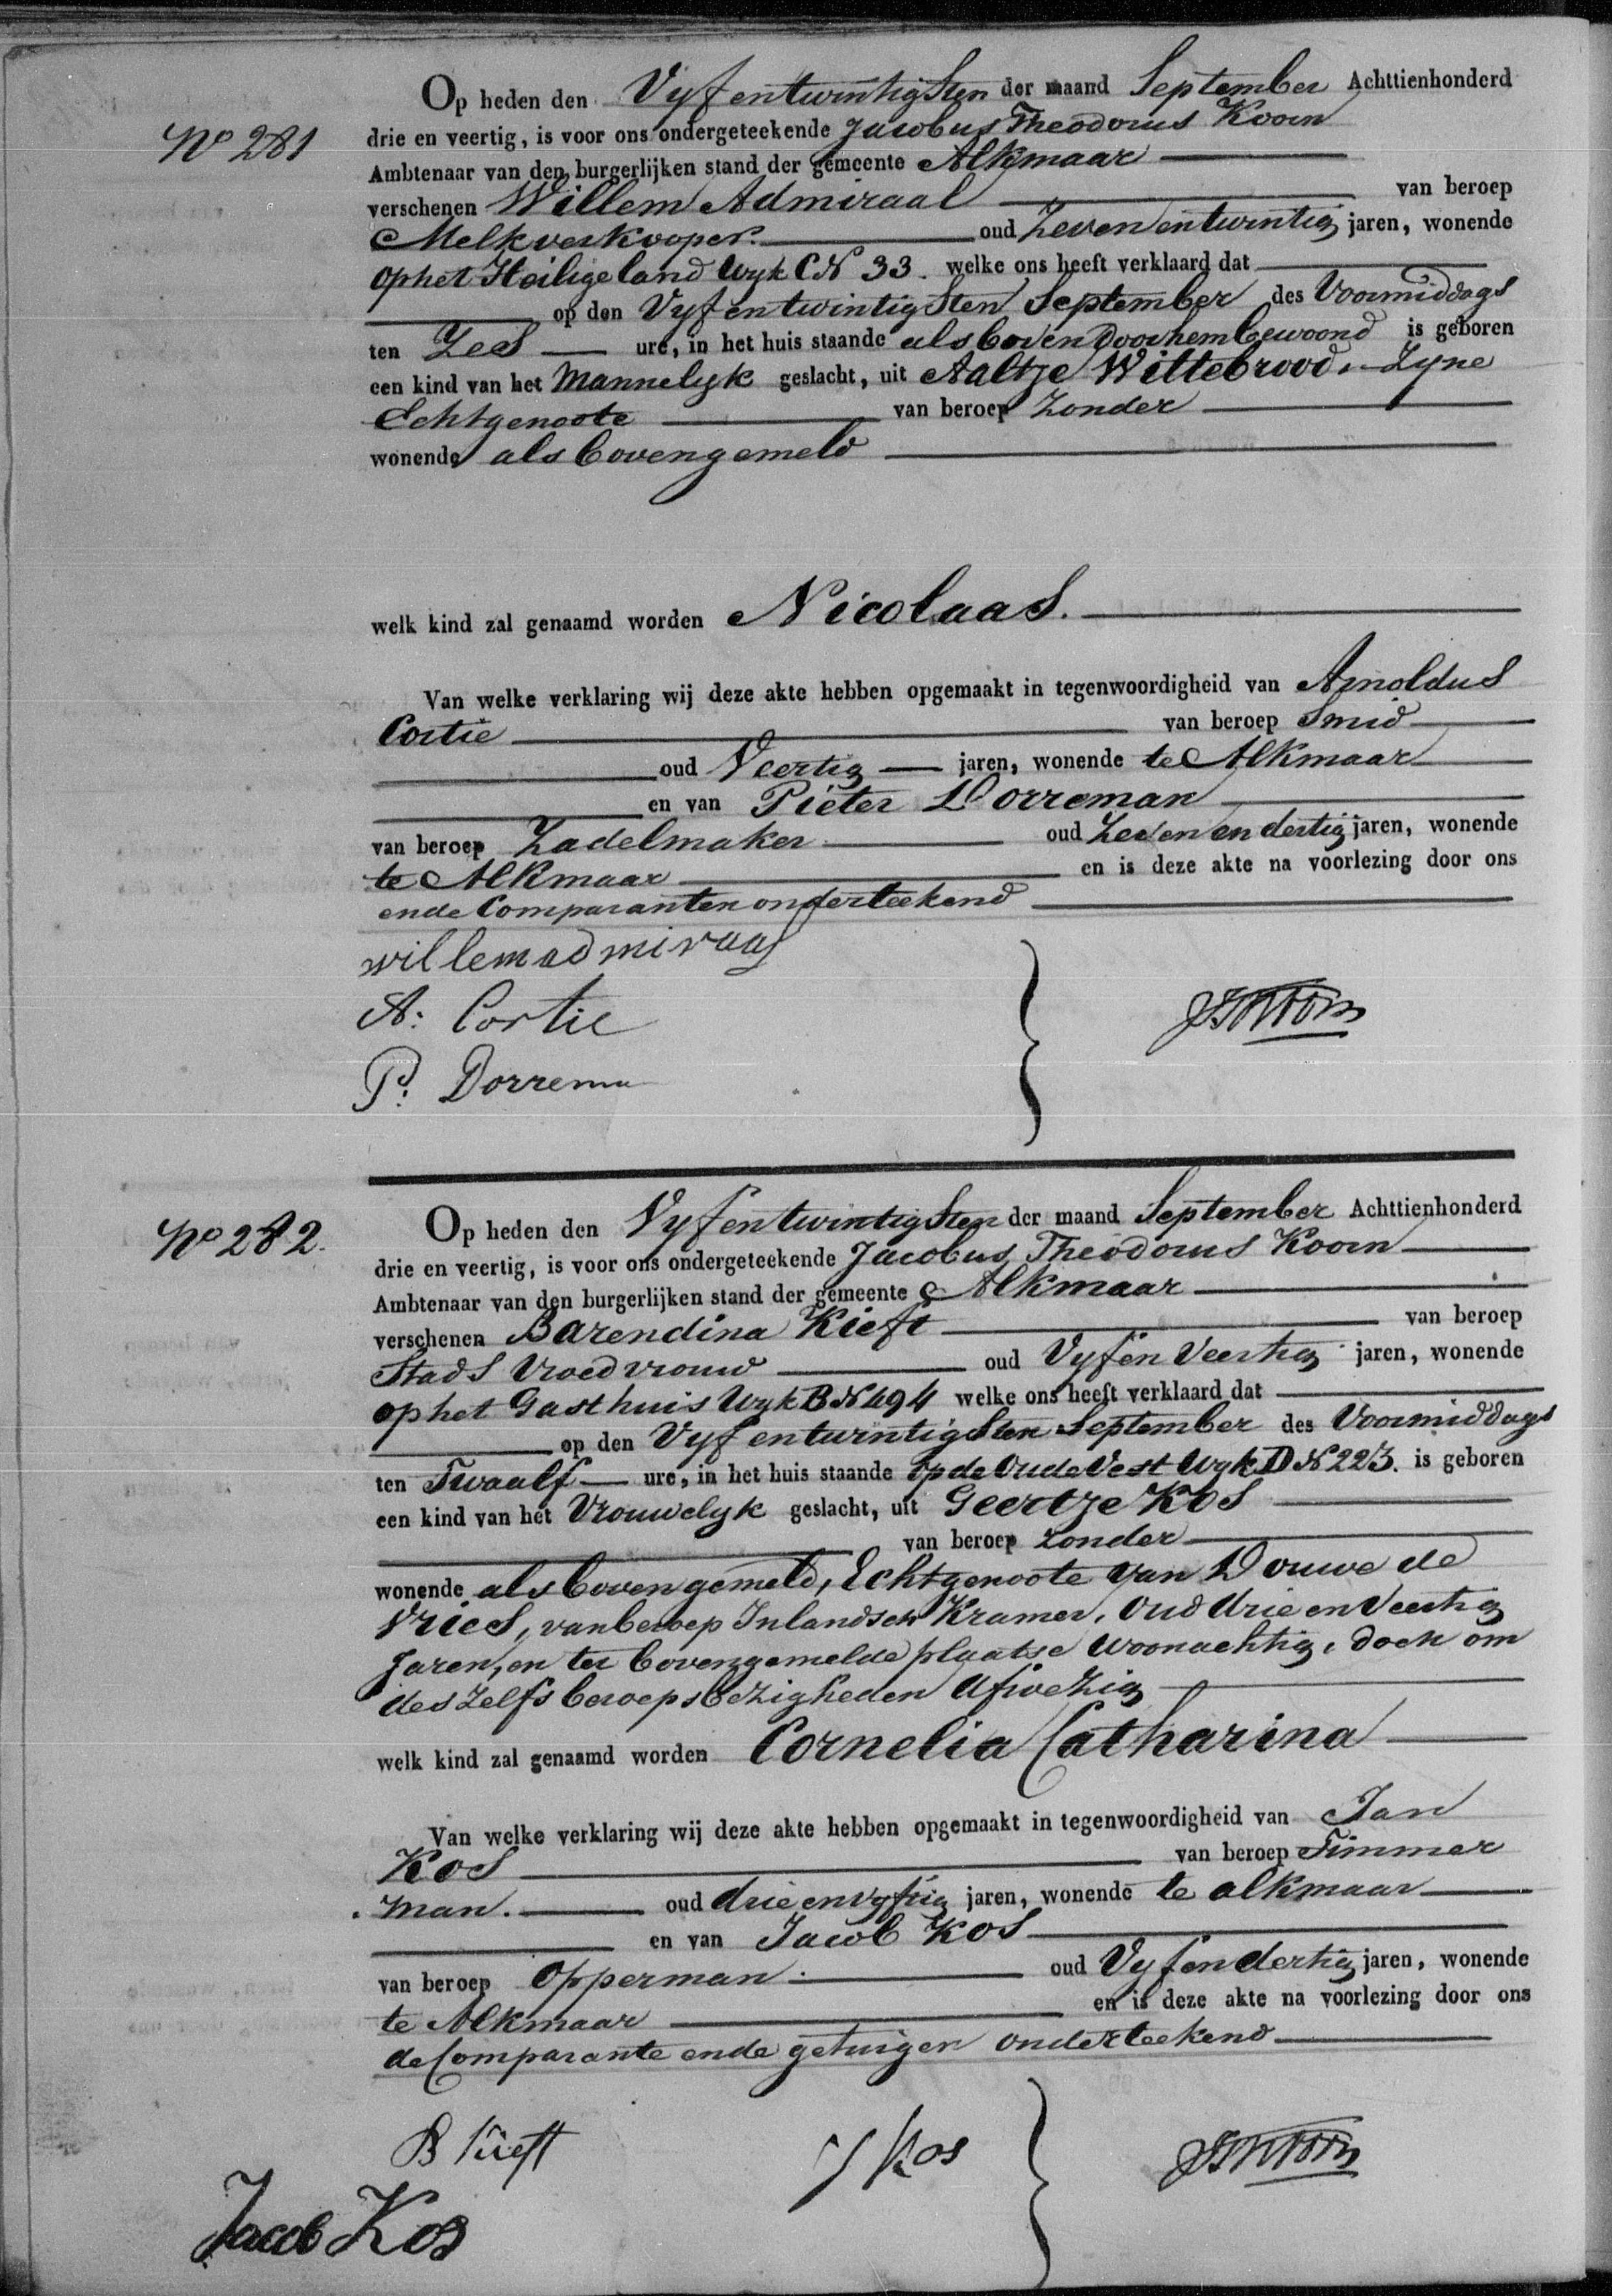 Op heden den Vyfentwintigsten der maand September Achttienhonderd
No 281
drie en veertig, is voor ons ondergeteekende Jacobus Theodorus Koorn
Ambtenaar van den burgerlijken stand der gemeente Alkmaar
verschenen Willem Admiraal van beroep
Melkverkooper. oud Zevenentwintig jaren, wonende
op het Heiligeland Wyk C N 33. welke ons heeft verklaard dat
op den Vyfentwintigsten September des Voormiddags
ten Zes ure, in het huis staande als boven Doorhem bewoond is geboren
een kind van het Mannelyk geslacht, uit Aaltje Wittebrood. Zyne
Echtgenoote van beroep Zonder
wonende als bovengemeld
welk kind zal genaamd worden Nicolaas.
Van welke verklaring wij deze akte hebben opgemaakt in tegenwoordigheid van Arnoldus
Cortie van beroep Smid
oud Veertig jaren, wonende te Alkmaar
en van Pieter Dorreman
van beroep Zadelmaker oud Zevenendertig jaren, wonende
te Alkmaar en is deze akte na voorlezing door ons
en de Comparanten onderteekend
willem admiraal
A: Cortie
P: Dorrema
JTKoorn
No 282.
Op heden den Vyfentwintigsten der maand September Achttienhonderd
drie en veertig, is voor ons ondergeteekende Jacobus Theodorus Koorn
Ambtenaar van den burgerlijken stand der gemeente Alkmaar
verschenen Barendina Kieft van beroep
Stads Vroedvrouw oud Vyfen Veertig jaren, wonende
op het Gasthuis Wyk B N 494 welke ons heeft verklaard dat
op den Vyfentwintigsten September des Voormiddags
ten Twaalf ure, in het huis staande op de Oude Vest Wyk D N 223. is geboren
een kind van het Vrouwelyk geslacht, uit Geertje Kos
van beroep Zonder
wonende als bovengemeld, Echtgenoote van Douwe de
Vries, van beroep Inlandsch Kramer, Oud drie en Veertig
Jaren, en ter bovengemelde plaatse Woonachtig, doch om
deszelfs beroepsbezigheden Afwezig
welk kind zal genaamd worden Cornelia Catharina
Van welke verklaring wij deze akte hebben opgemaakt in tegenwoordigheid van Jan
Kos van beroep Timmer
man. oud drieenvyftig jaren, wonende te alkmaar
en van Jacob Kos
van beroep Opperman. oud Vyfendertig jaren, wonende
te Alkmaar en is deze akte na voorlezing door ons
de Comparante en de getuigen onderteekend
B Kieft
J Kos
JTKoorn
Jacob Kos